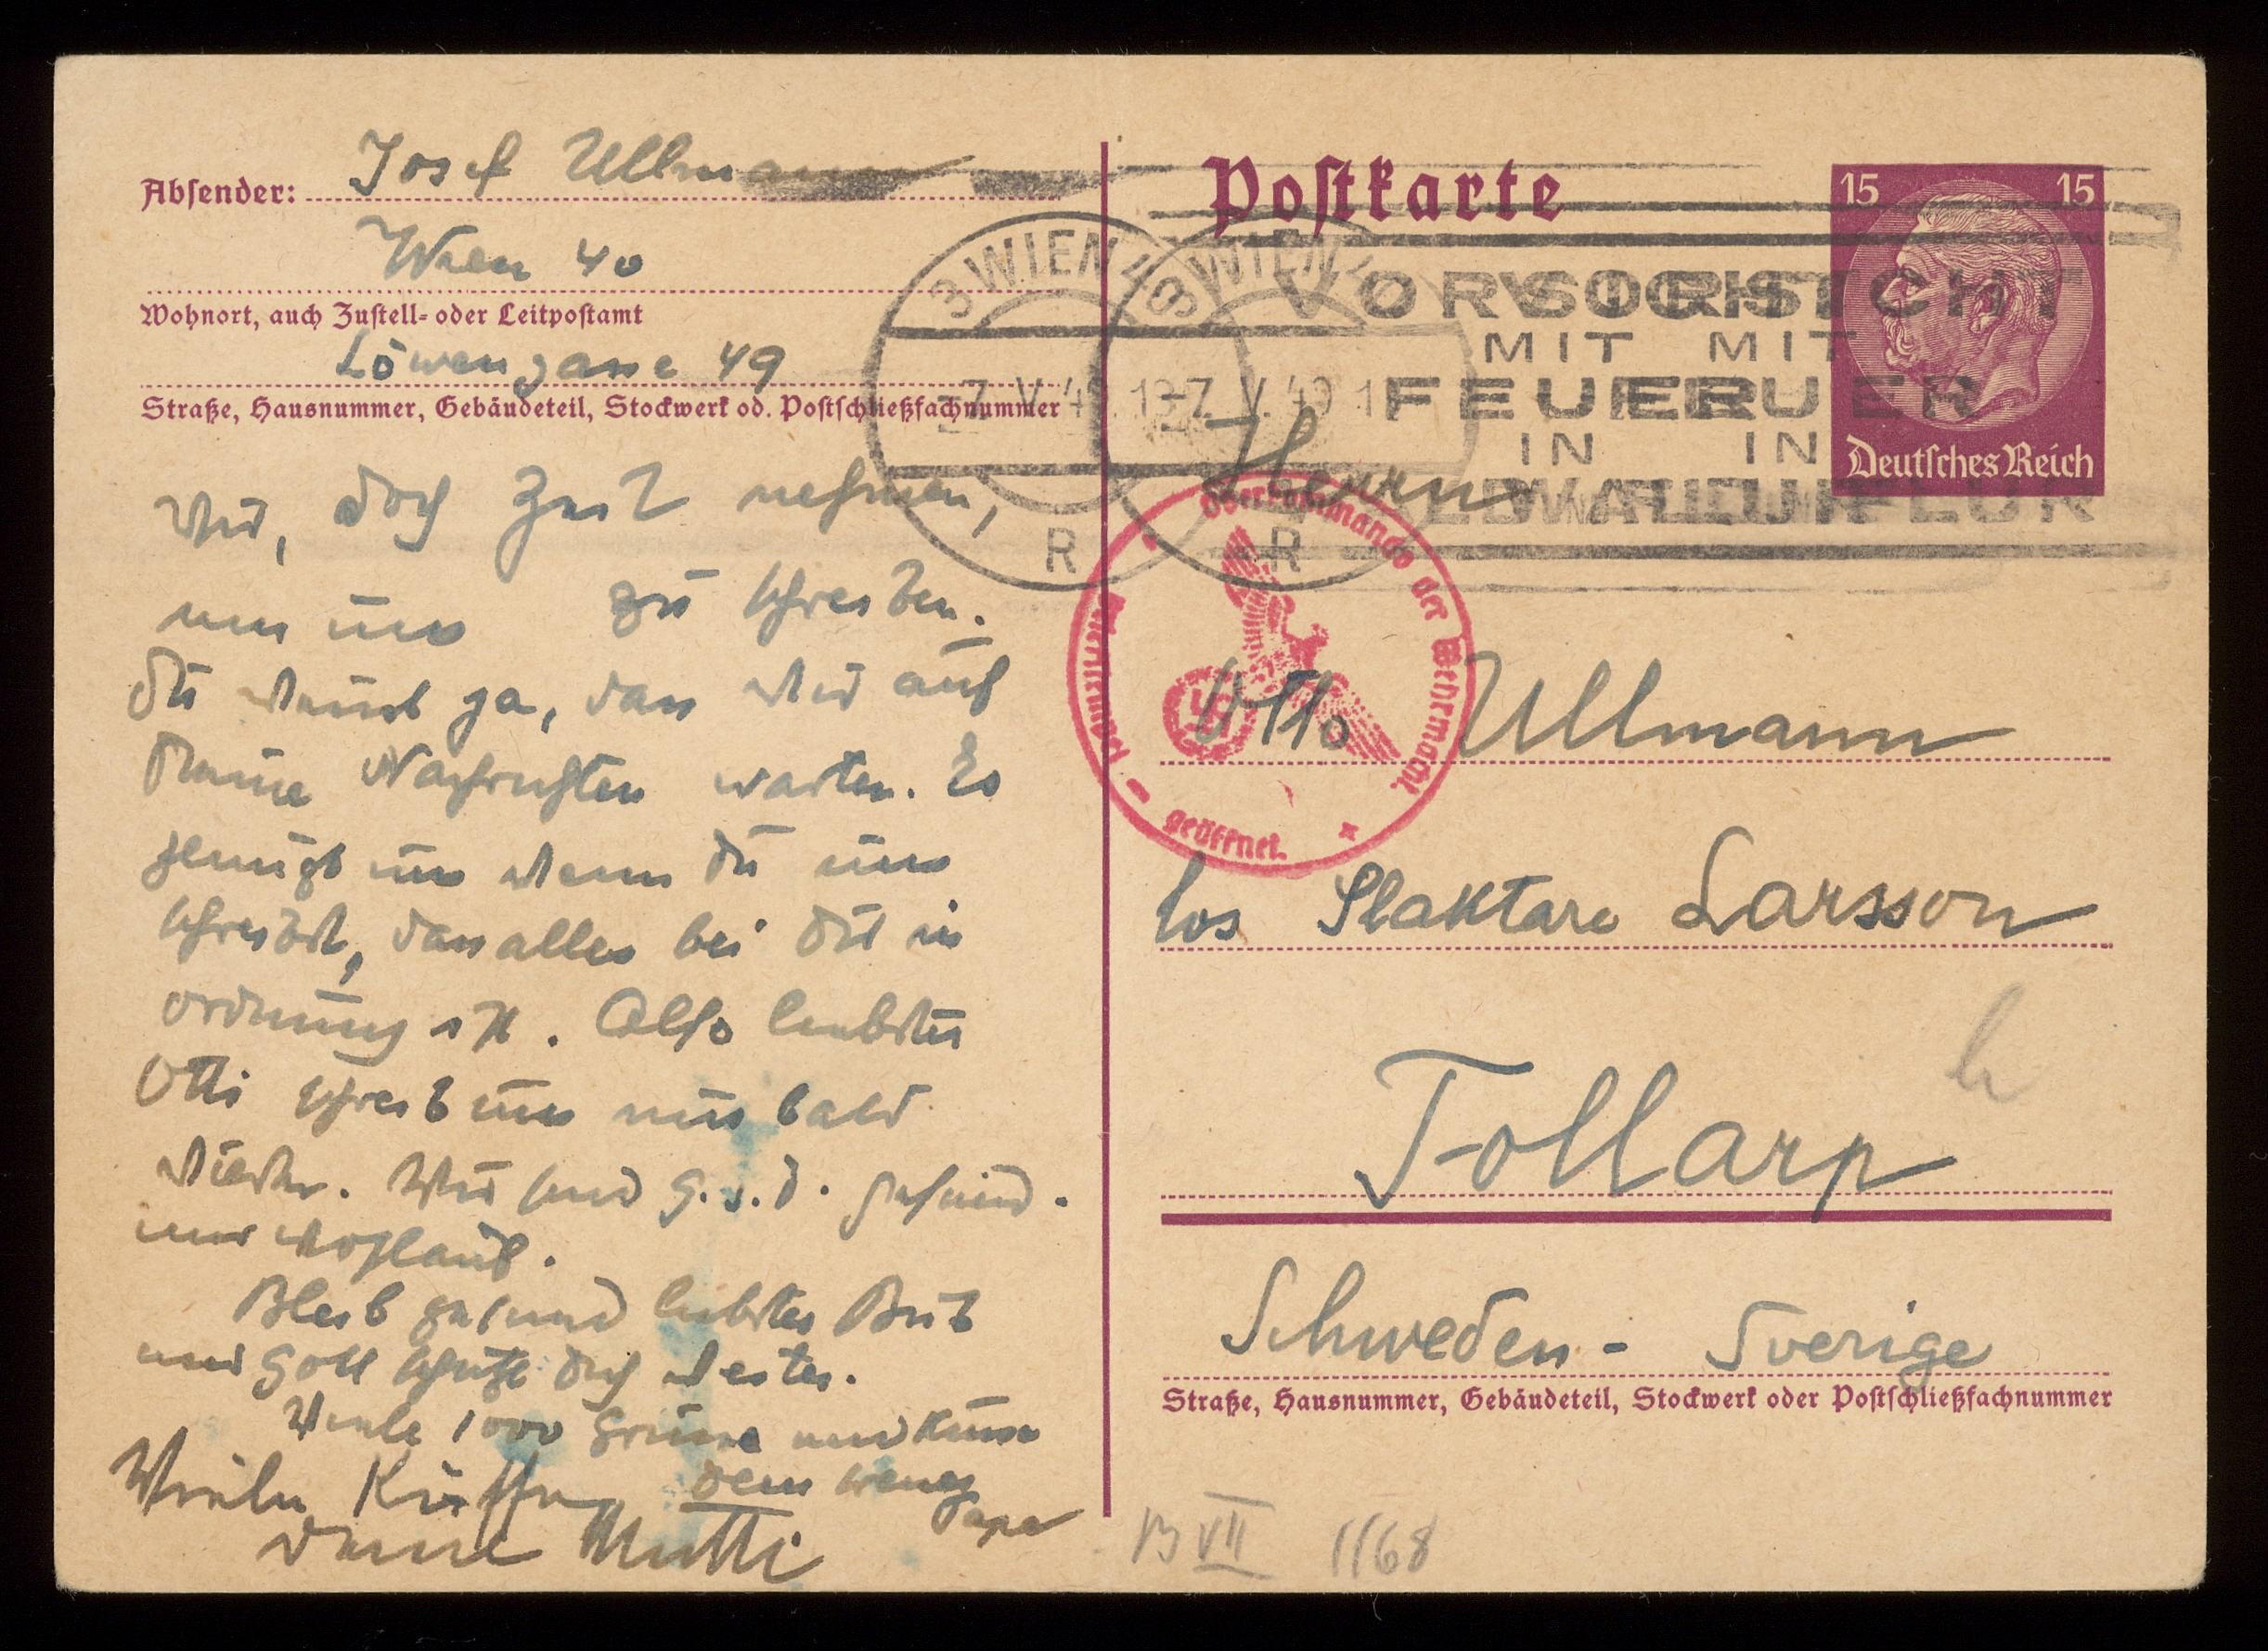 Absender: Josef Ullmann
Wien 40
Wohnort, auch Zustell- oder Leitpostamt
Löwengasse 49
Straße, Hausnummer, Gebäudeteil, Stockwerk od. Postschließfachnummer
doch Zeit nehmen,
um uns zu schreiben.
Du weisst ja, dass wir auf
Deine Nachrichten warten. Es
genügt uns wenn Du uns
schreibst, dass alles bei Dir in
Ordnung ist. Also liebster
Otti schreib uns nur bald
wieder. Wir sind G.s.D. gesund
und wohlauf.
Bleib gesund liebster Bub
und Gott schütze Dich weiter.
Viele 1000 Grüsse und Küsse
Dein
Papa
Viele Küsse
Deine Mutti
Postkarte
15 15
Deutsches Reich
WIEN
WIEN
7. V. 7. V.
R R
VORSICHT
MIT MIT
FEUER
IN IN
WALD U FLUR
Oberkommando der Wehrmacht
geöffnet
Herrn
Otto Ullmann
hos Slaktare Larsson
Tollarp
Schweden - Sverige
Straße, Hausnummer, Gebäudeteil, Stockwerk oder Postschließfachnummer
B VII 1168